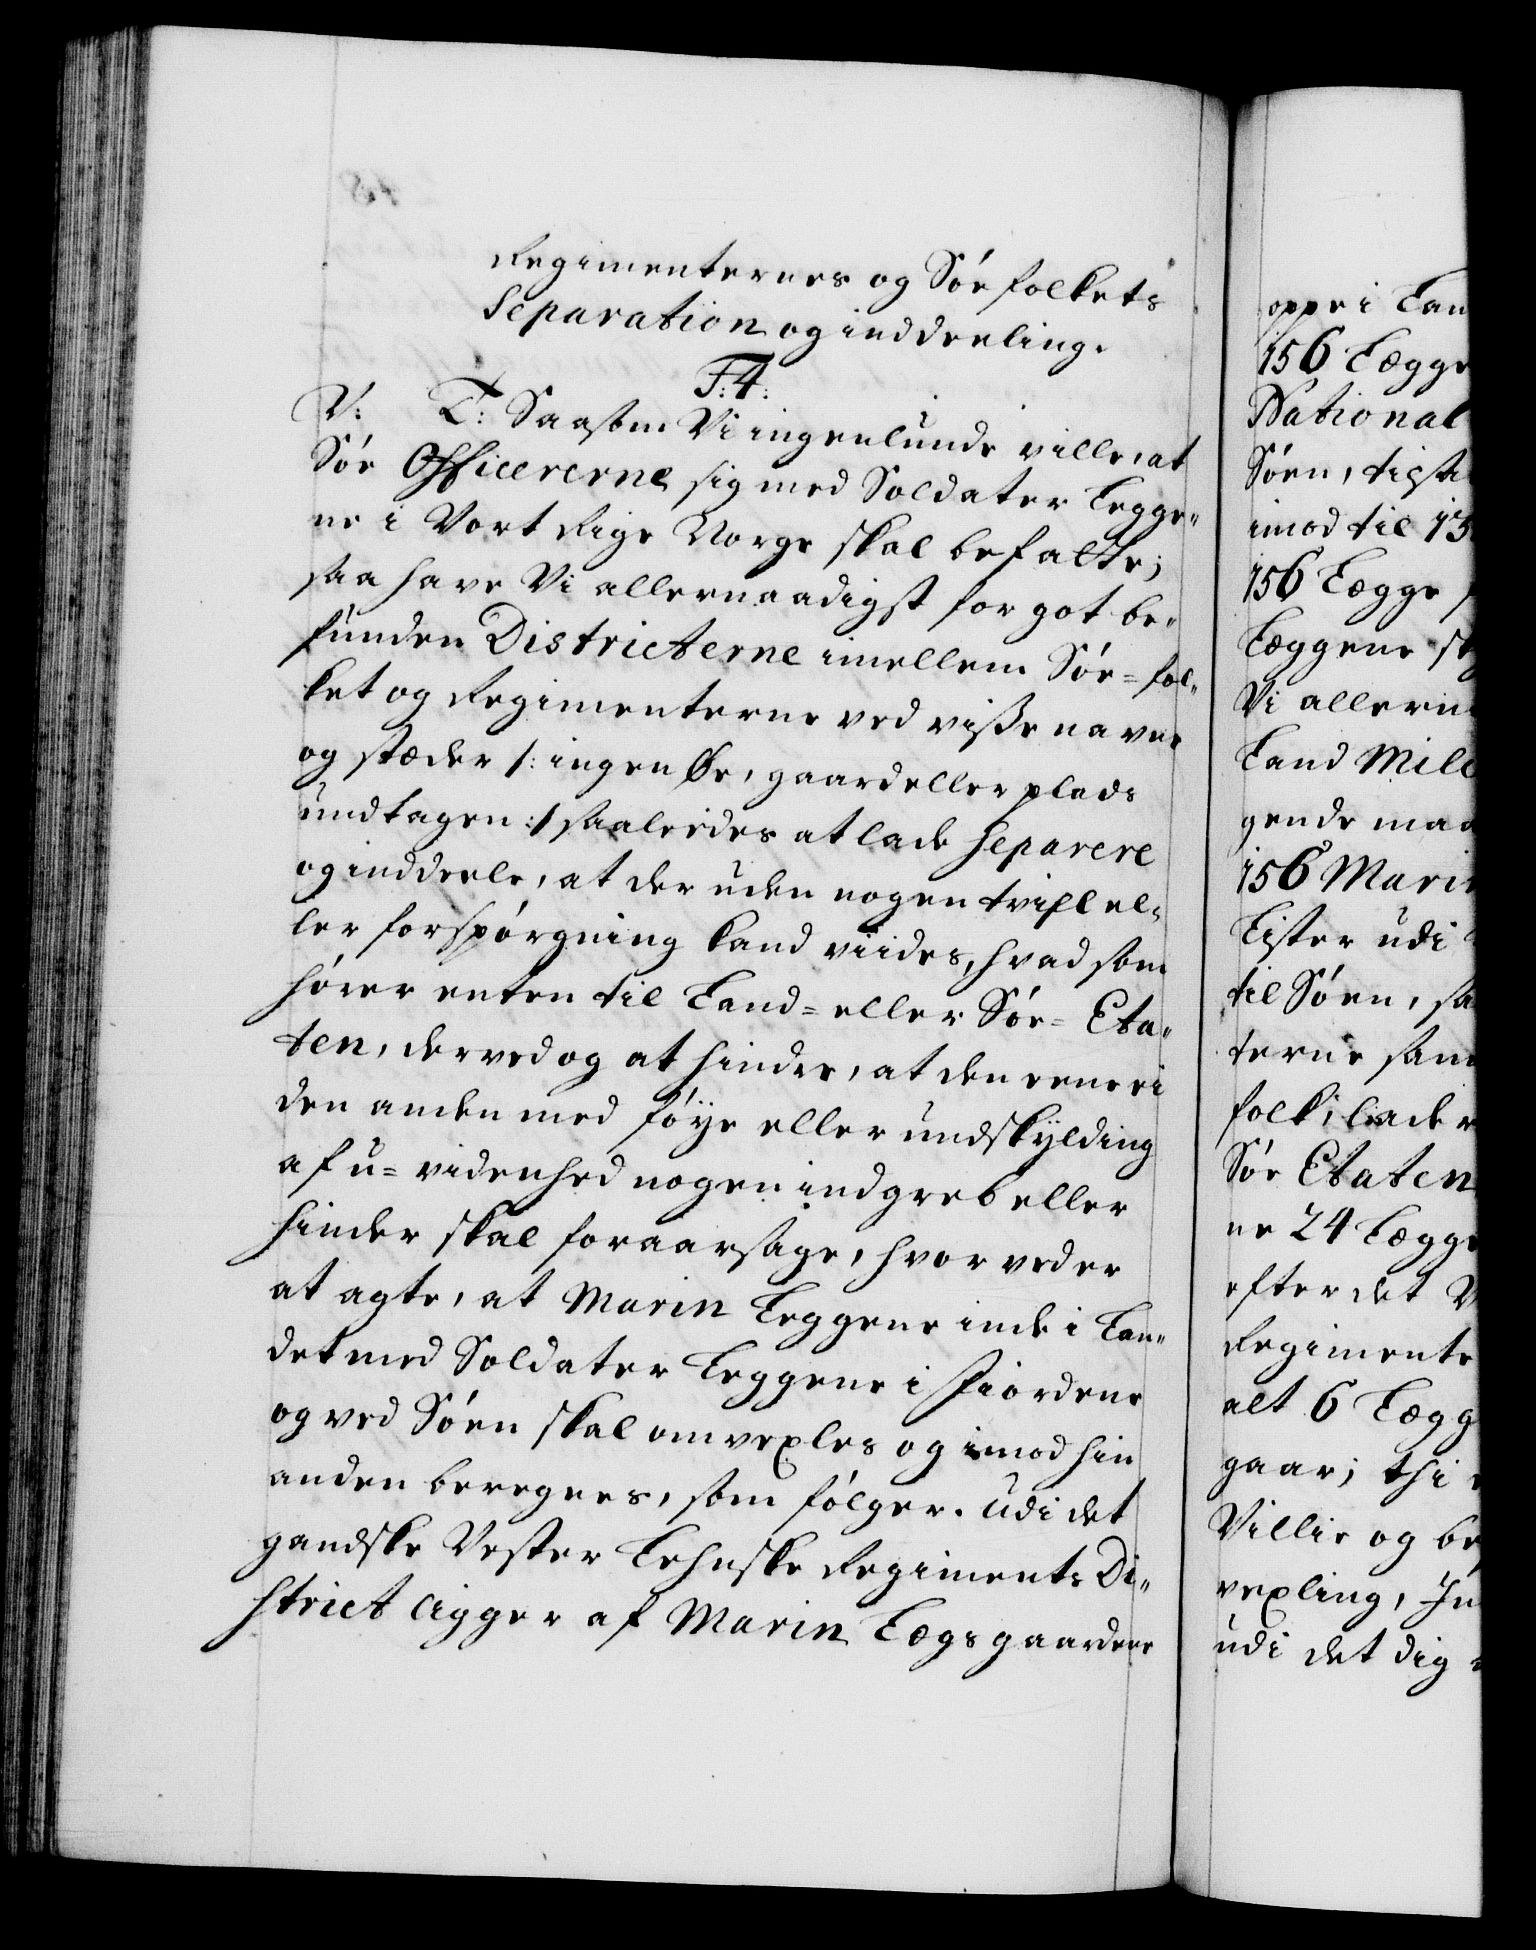 Regimenternes og Söe folkets
Separation og inddeeling.
F: 4:
V: T: Saasom Vi ingenlunde ville, at
Söe Officererne sig med Soldater Legge„
ne i Vort Rige Norge skal befatte;
saa have Vi allernaadigst for got be„
funden Districterne imellem Söe=fol„
ket og Regimenterne ved visse navne
og stæder /: ingen Øe, gaard eller plads
undtagen :/ saaleedes at lade separere
og inddeele, at der uden nogen tvifl el„
ler forspörgning kand viides, hvad som
hörer enten til Land= eller Söe= Eta„
ten, derved og at hindre, at den eene ei
den anden med föye eller undskylding
af u=videnhed nogen indgreb eller
hinder skal foraarsage, hvorved er
at agte, at Marin Leggene inde i Lan„
det med Soldater Leggene i Fiordene
og ved Söen skal omvexles og imod hin
anden beregnes, som fölger. Udi det
gandske Vester Lehnske Regiments Di„
strict ligger af Marin Lægs gaardene
oppe i Lan
156 Lægge
National
Söen, tilst
imod til 15
156 Lægge
Læggene
Vi allern
Land Mil
gende maa
156 Marin
Lister udi
til Söen, sa
terne sam
folk, lade
Söe Etaten
ne 24 Lægge
efter det V
Regimente
alt 6 Lægg
gaar; thi
Villie og be
vexling, In
udi det dig